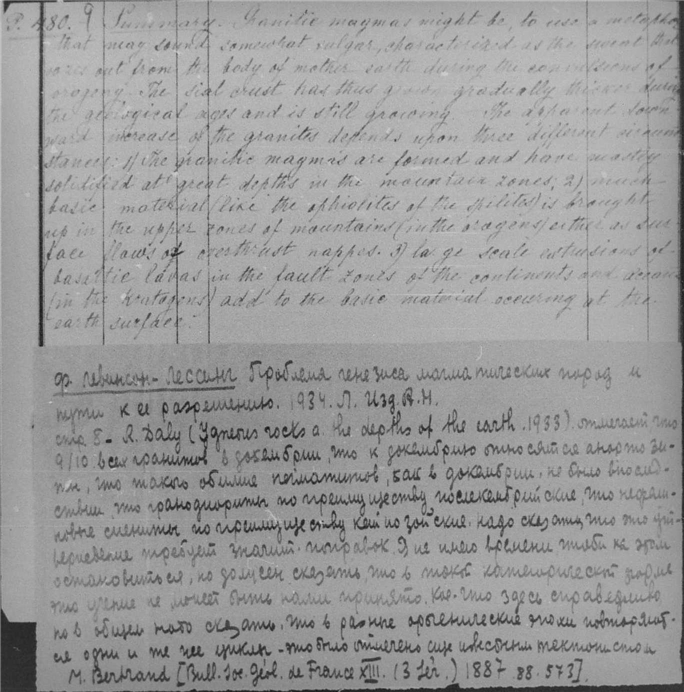 P. 480. 9 Summary. Granitic magmas might be, to use a metaphor
that may sound somewhat vulgar, characterized as the sweat that
oozes out from the body of mother earth during the convulsions of
orogeny. The sial crust has thus grown gradually thicker during
the geological ages and is still growing. The apparent down
ward increase of the granites depends upon three different circum
stances: 1) The granitic magmas are formed and have mostly
solidified at great depths in the mountain zones; 2) much
basic material (like the ophiolites of the spilites) is brought
up in the upper zones of mountains (in the orogens) either as sur
face flows of overthrust nappes. 3) large scale extrusions of
basaltic lavas in the fault zones of the continents and oceans
(in the kratogens) add to the basic material occuring at the
earth surface.
Ф. Левинсон-Лессинг Проблема генезиса магматических пород и
пути к ее разрешению. 1934. Л. Изд. А.Н.
стр 8 - R. Daly (Igneous rocks a. the depths of the earth. 1933) отмечает что
9/10 всех гранитов в докембрии, что к докембрию относятся анортози-
ты, что такого обилия пегматитов, как в докембрии, не было впослед-
ствии, что гранодиориты по преимуществу послекембрийские, что нефели-
новые сиениты по преимуществу кайнозойские. надо сказать, что это ут-
верждение требует значит. поправок. Я не имею времени чтобы на этом
остановиться, но должен сказать, что в такой категорической форме
это учение не может быть нами принято. Кое-что здесь справедливо
но в общем надо сказать, что в разные орогенические эпохи повторяют-
ся одни и те же циклы - это было отмечено еще известным тектонистом
M. Bertrand [Bull. Soc. Géol. de France XIII. (3 Sér.) 1887 88. 573].